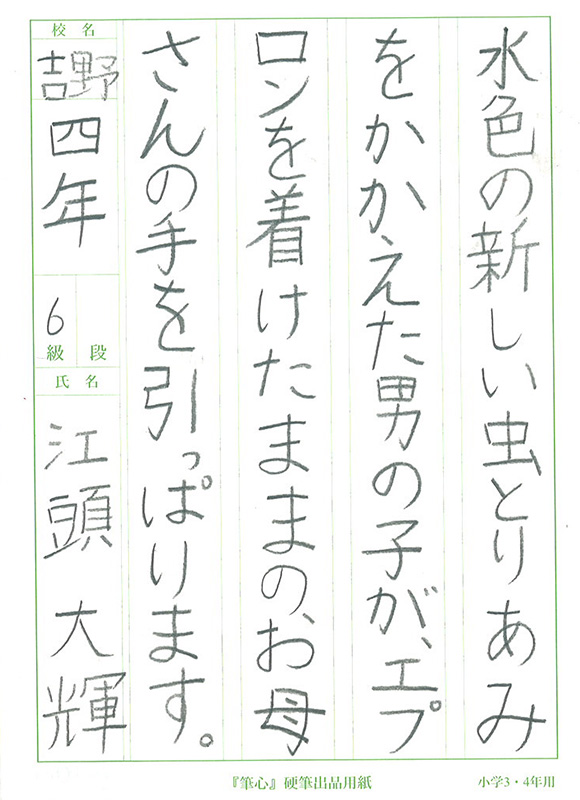 水色の新しい虫とりあみ
をかかえた男の子が、エプ
ロンを着けたままのお母
さんの手を引っぱります。
校名
吉野
四年
6
級 段
氏名
江頭 大輝
『筆心』硬筆出品用紙
小学3・4年用